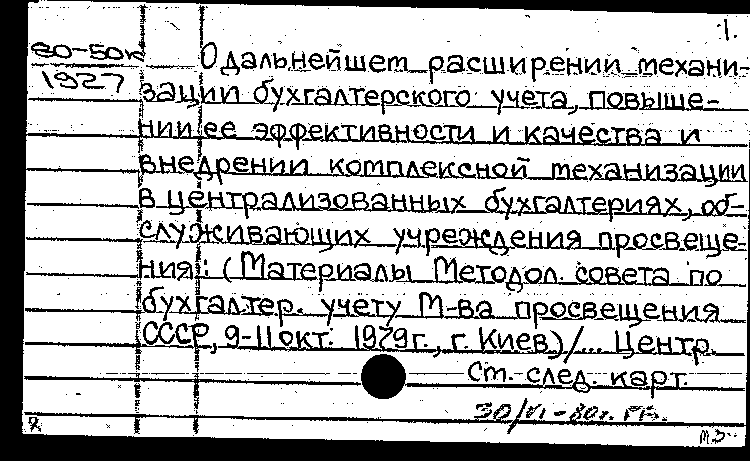 1.
80-50к
1927
О дальнейшем расширении механи-
зации бухгалтерского учета, повыше-
нии ее эффективности и качества и
внедрении комплексной механизации
в централизованных бухгалтериях, об-
служивающих учреждения просвеще-
ния: (Материалы Методол. совета по
бухгалтер. учету М-ва просвещения
СССР, 9-11 окт. 1979 г., г. Киев)/... Центр.
См. след. карт.
30/VI-80г.